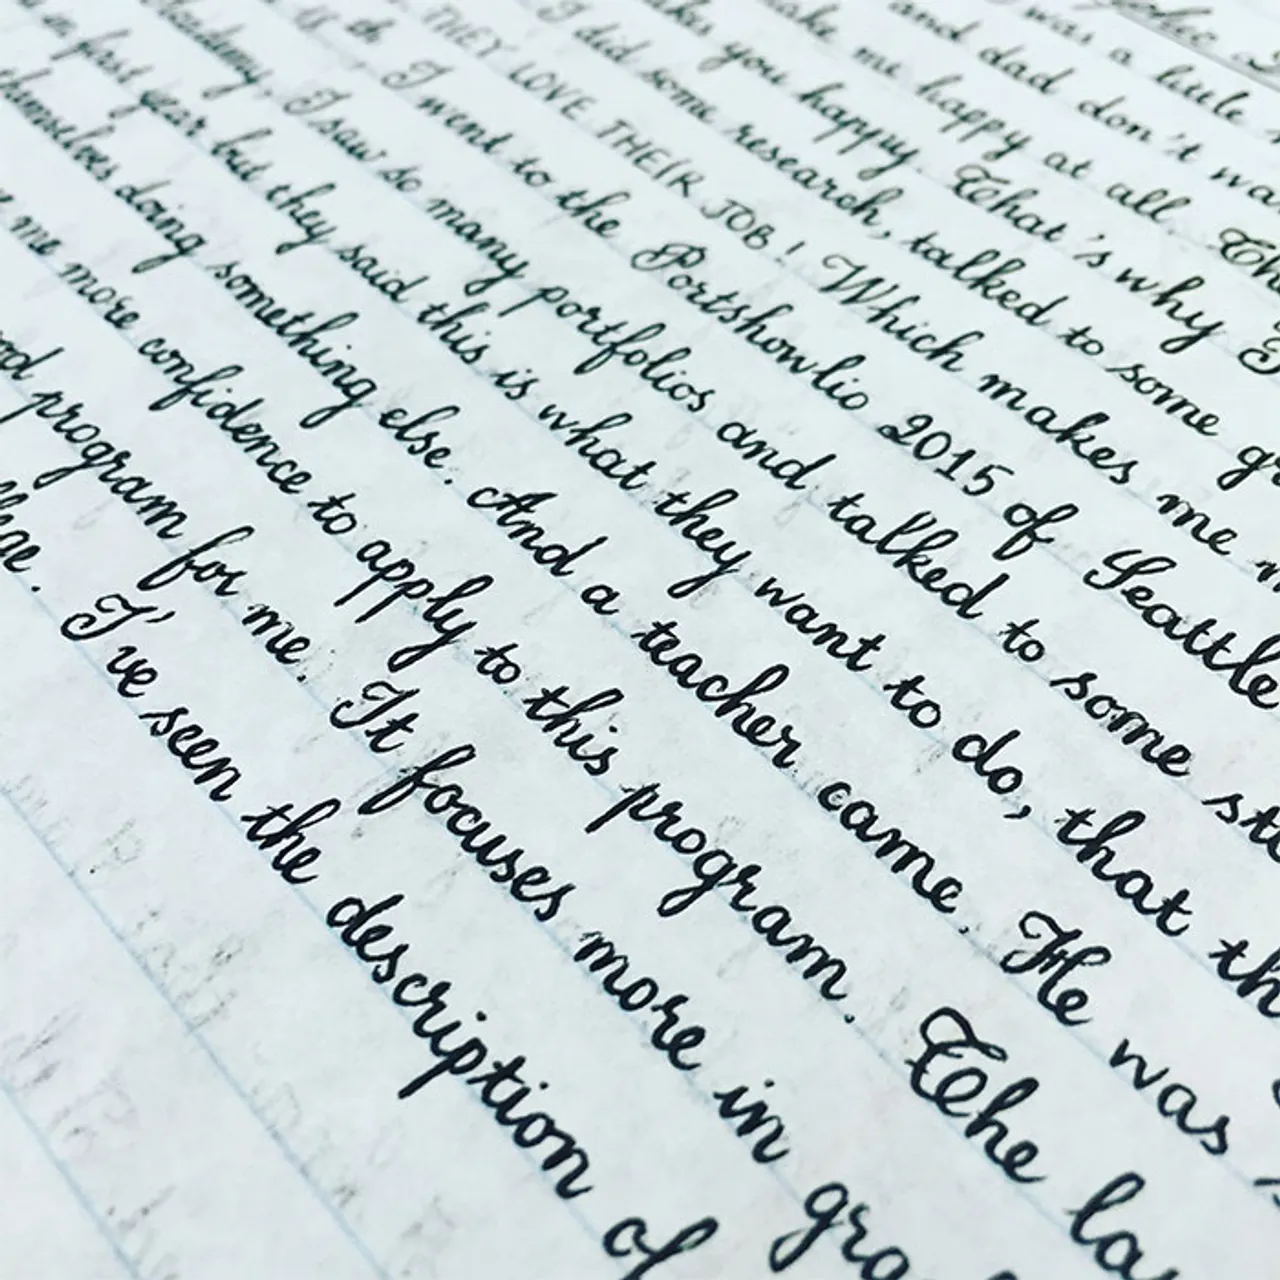 was a little
and dad don't
make me happy at all.
you happy. That's why I
I did some research, talked to some
THEY LOVE THEIR JOB! Which makes me
I went to the Portshowlio 2015 of Seattle
Academy, I saw so many portfolios and talked to some
first year but they said this is what they want to do, that
themselves doing something else. And a teacher came. He was
me more confidence to apply to this program. The
program for me. It focuses more in
I've seen the description of